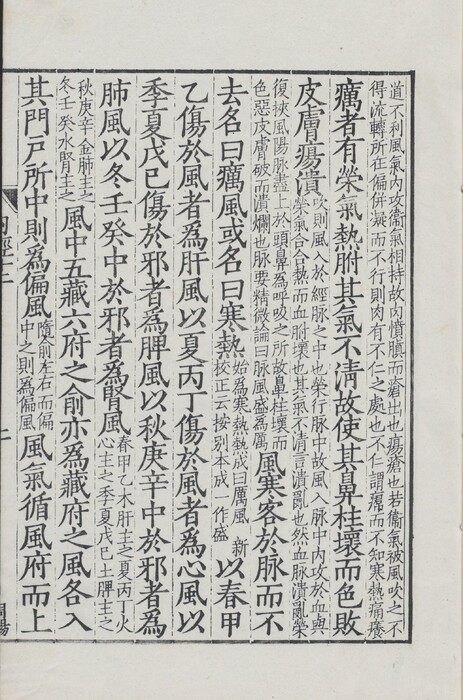 道不利風氣內攻衞氣相持故肉憤䐜而瘡出也瘍瘡也若衞氣被風吹之不
得流轉所在偏併凝而不行則肉有不仁之處也不仁謂㿏而不知寒熱痛癢
癘者有榮氣熱胕其氣不淸故使其鼻柱壞而色敗
皮膚瘍潰吹則風入於經脈之中也榮行脈中故風入脈中内攻於血與
榮氣合合熱而血胕壞也其氣不淸言潰亂也然血脈潰亂榮
復挾風陽脈盡上於頭鼻爲呼吸之所故鼻柱壞而
色惡皮膚破而潰爛也脈要精微論曰脈風盛爲厲風寒客於脈而不
去名曰癘風或名曰寒熱始爲寒熱熱成曰厲風　新
校正云按别本成一作盛以春甲
乙傷於風者爲肝風以夏丙丁傷於風者爲心風以
季夏戊己傷於邪者爲脾風以秋庚辛中於邪者爲
肺風以冬壬癸中於邪者爲腎風春甲乙木肝主之夏丙丁火
心主之季夏戊己土脾主之
秋庚辛金肺主之
冬壬癸水腎主之風中五藏六府之俞亦爲藏府之風各入
其門戸所中則爲偏風隨俞左右而偏
中之則爲偏風風氣循風府而上